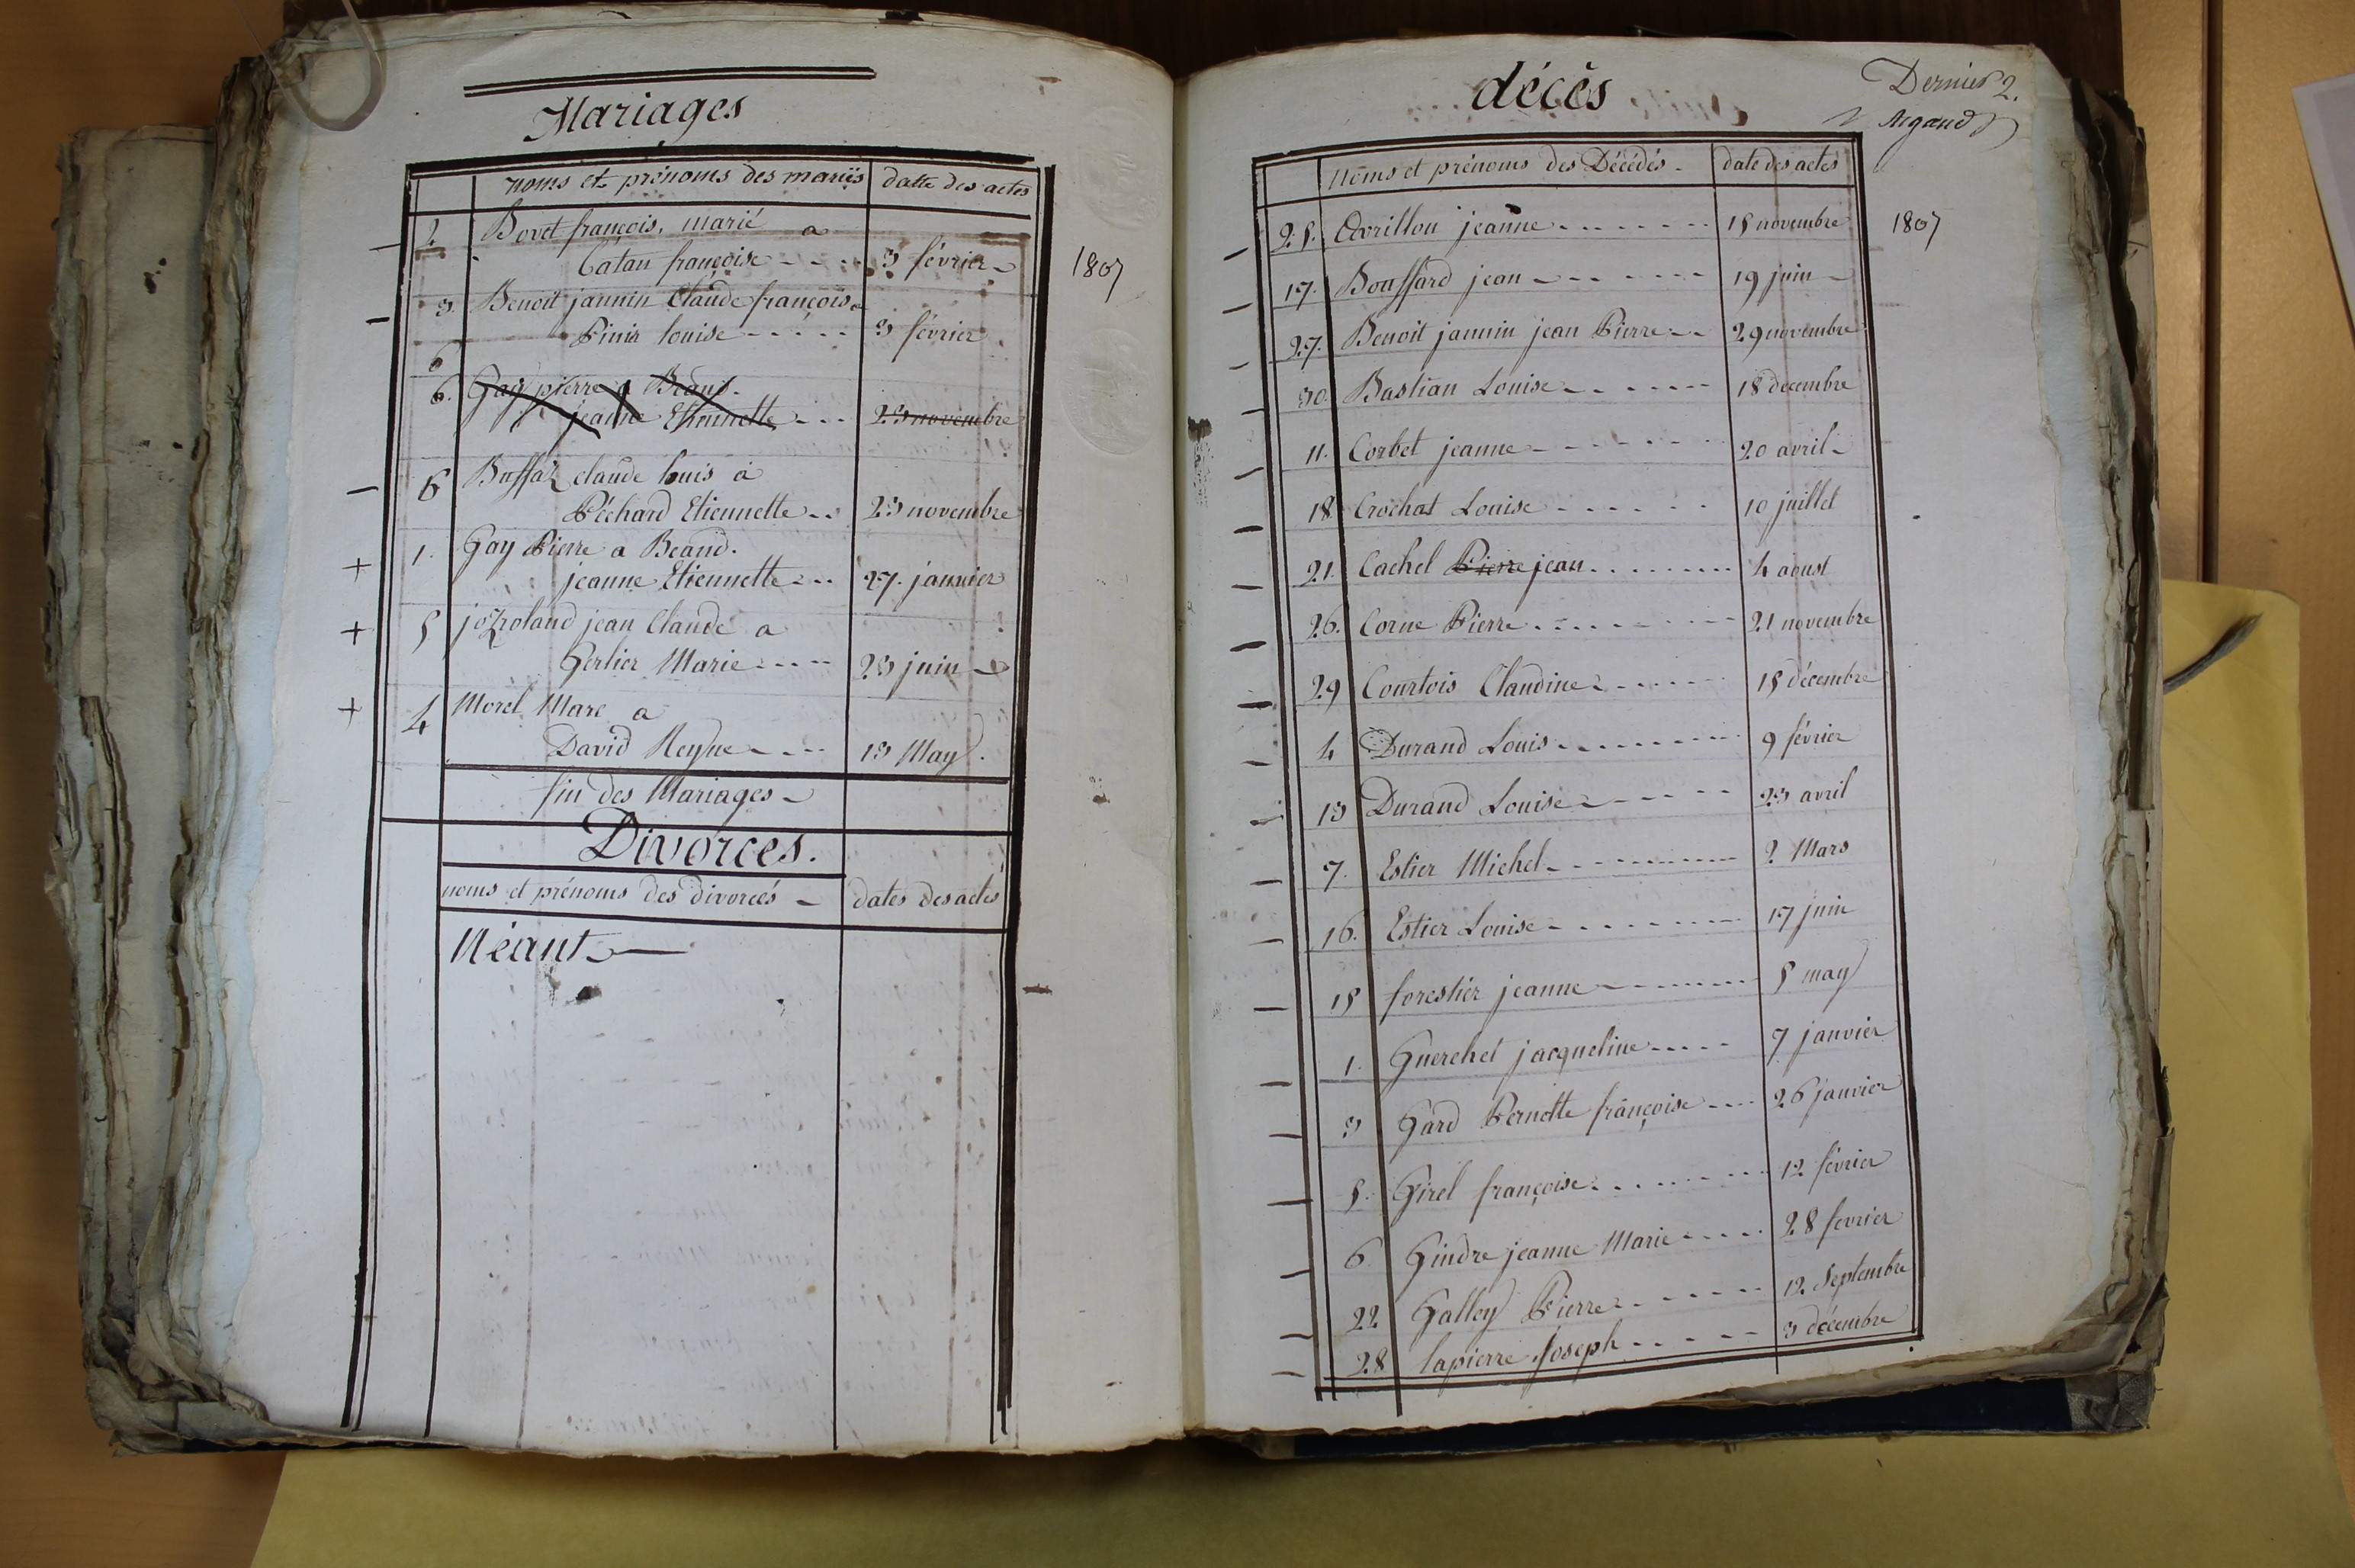 Mariages
noms et prénoms des mariés datte des actes
2. Bovet françois, marié a
Catan françoise 3 février
1807
3 Benoit jannin Claude françois a
Pinir louise 3 février
6
6. Gay pierre a Beaud.
jeanne Etiennette 23 novembre
6 Buffaz claude louis à
Péchard Etiennette 23 novembre
1. Gay Pierre a Beaud.
jeanne Etiennette 27. janvier
5 jozroland jean Claude a
Gerlier Marie 23 juin
4 Morel Marc a
David Reyne 13 May
fin des Mariages
Divorces.
noms et prénoms des divorcés dates des actes
Néant
décès
Dernier 2.
noms et prénoms des Décédés date des actes
25. Avrillon jeanne 15 novembre
1807
17. Bouffard jean 19 juin
27. Benoit jannin jean Pierre 29 novembre
30. Bastian Louise 18 decembre
11. Corbet jeanne 20 avril
18 Crochat Louise 10 juillet
21. Cachet Pierre jean 4 aoust
26. Corne Pierre 21 novembre
29 Courtois Claudine 15 décembre
4 Durand Louis 9 février
13 Durand Louise 23 avril
7. Estier Michel 2 Mars
16. Estier Louise 17 juin
15 forestier jeanne 5 may
1. Guerchet jacqueline 7 janvier
3 Gard Pernette françoise 26 janvier
5. Girel françoise 12 février
6. Gindre jeanne Marie 28 fevrier
22 Galley Pierre 12 Septembre
28 lapierre Joseph 3 décembre